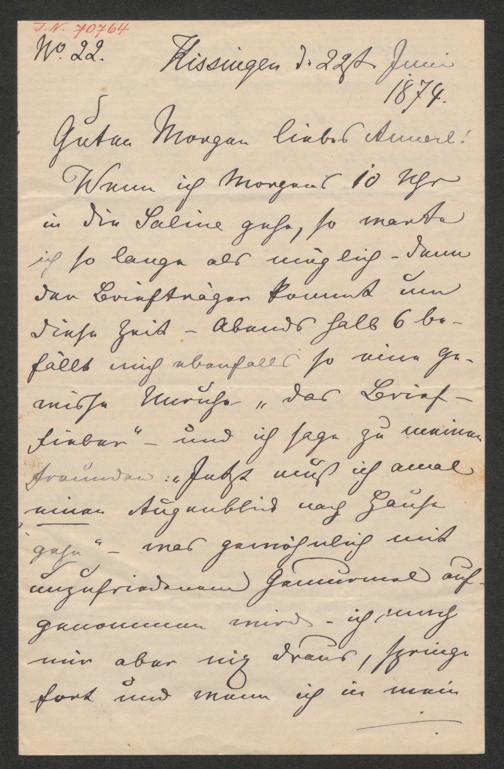 J. N. 70764
No. 22.
Kissingen d. 22t Juni
1874.
Guten Morgen liebes Annerl!
Wenn ich Morgens 10 Uhr
in die Saline gehe, so warte
ich so lange als möglich – denn
der Briefträger kommt um
diese Zeit – Abends halb 6 be-
fällt mich ebenfalls so eine ge-
wisse Unruhe „das Brief-
fieber“ – und ich sage zu meinen
Freunden: „Jetzt muß ich amal
einen Augenblick nach Hause
gehn“ – was gewöhnlich mit
unzufriedenem Gemurmel auf-
genommen wird – ich mach
mir aber nix draus, springe
fort und wenn ich in mein